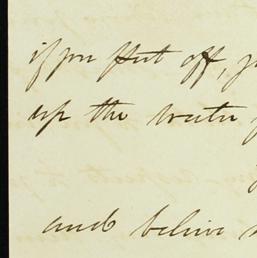 if you put off, y
up the water
and believe